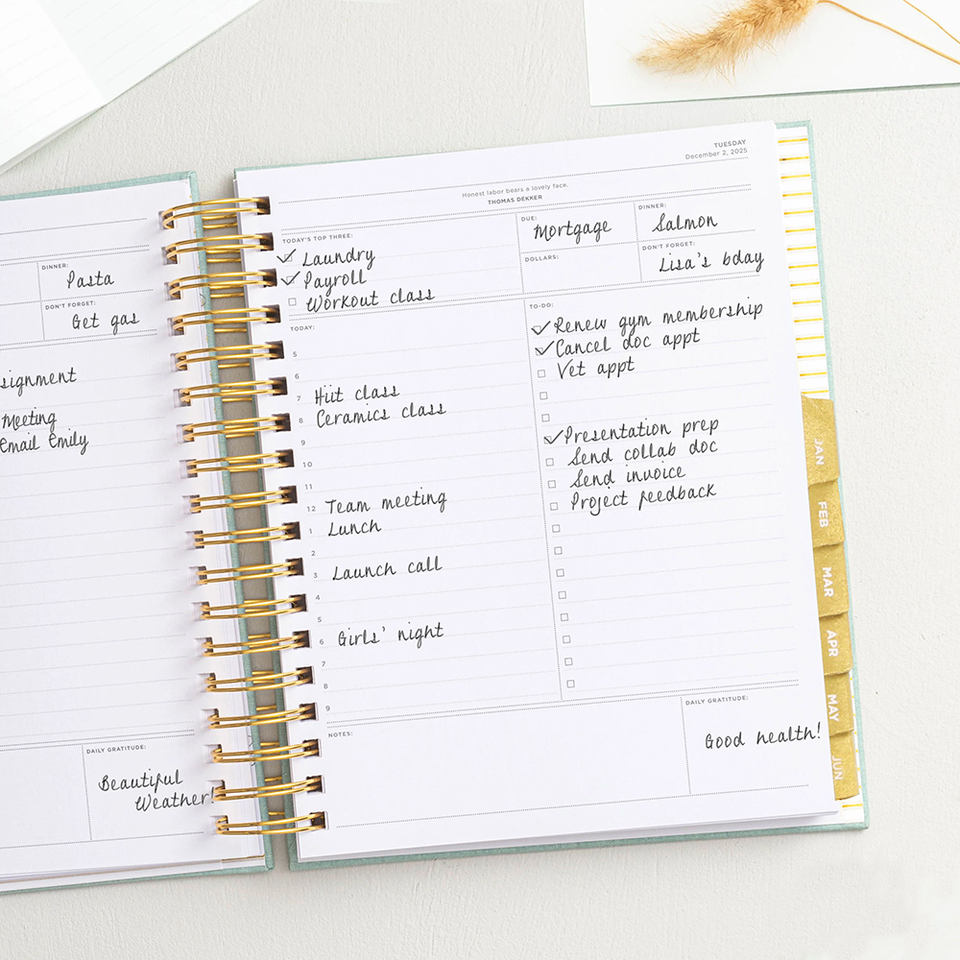 DINNER:
Pasta
DON'T FORGET:
Get gas
signment
Meeting
Email Emily
DAILY GRATITUDE:
Beautiful
Weather!
TUESDAY
December 2, 2025
Honest labor bears a lovely face.
THOMAS DEKKER
TODAY'S TOP THREE:
Laundry
Payroll
Workout class
DUE:
Mortgage
DINNER:
Salmon
DOLLARS:
DON'T FORGET:
Lisa's bday
TODAY:
5
6
7 Hiit class
8 Ceramics class
9
10
11
12 Team meeting
1 Lunch
2
3 Launch call
4
5
6 Girls' night
7
8
9
TO-DO:
Renew gym membership
Cancel doc appt
Vet appt
Presentation prep
Send collab doc
Send invoice
Project feedback
NOTES:
DAILY GRATITUDE:
Good health!
JAN
FEB
MAR
APR
MAY
JUN